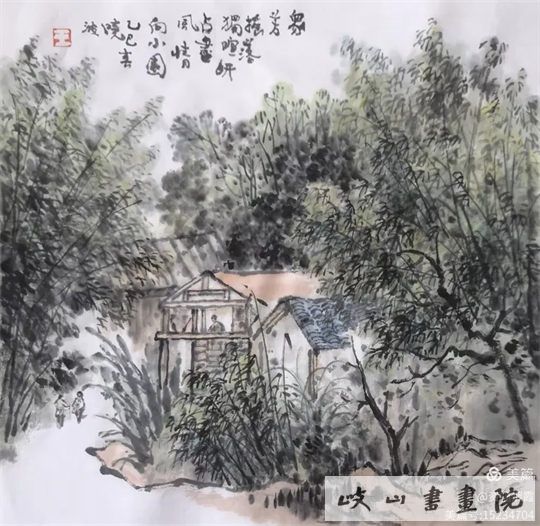 衆
芳
搖落
獨暄妍
占盡
風情
向小園
乙巳春
曉
波
王
岐山書畫院
美篇
美篇号:15234704